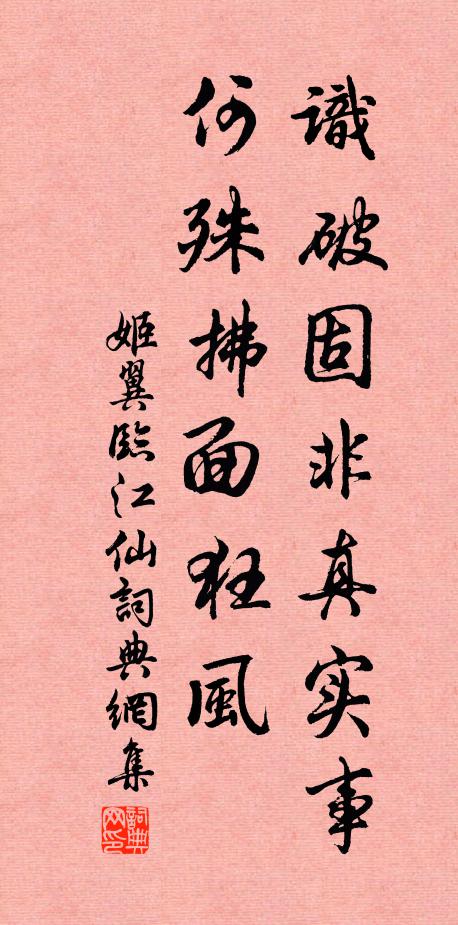 識破固非真实事
何殊拂面狂風
姬翼臨江仙詞典網集
詞典网印